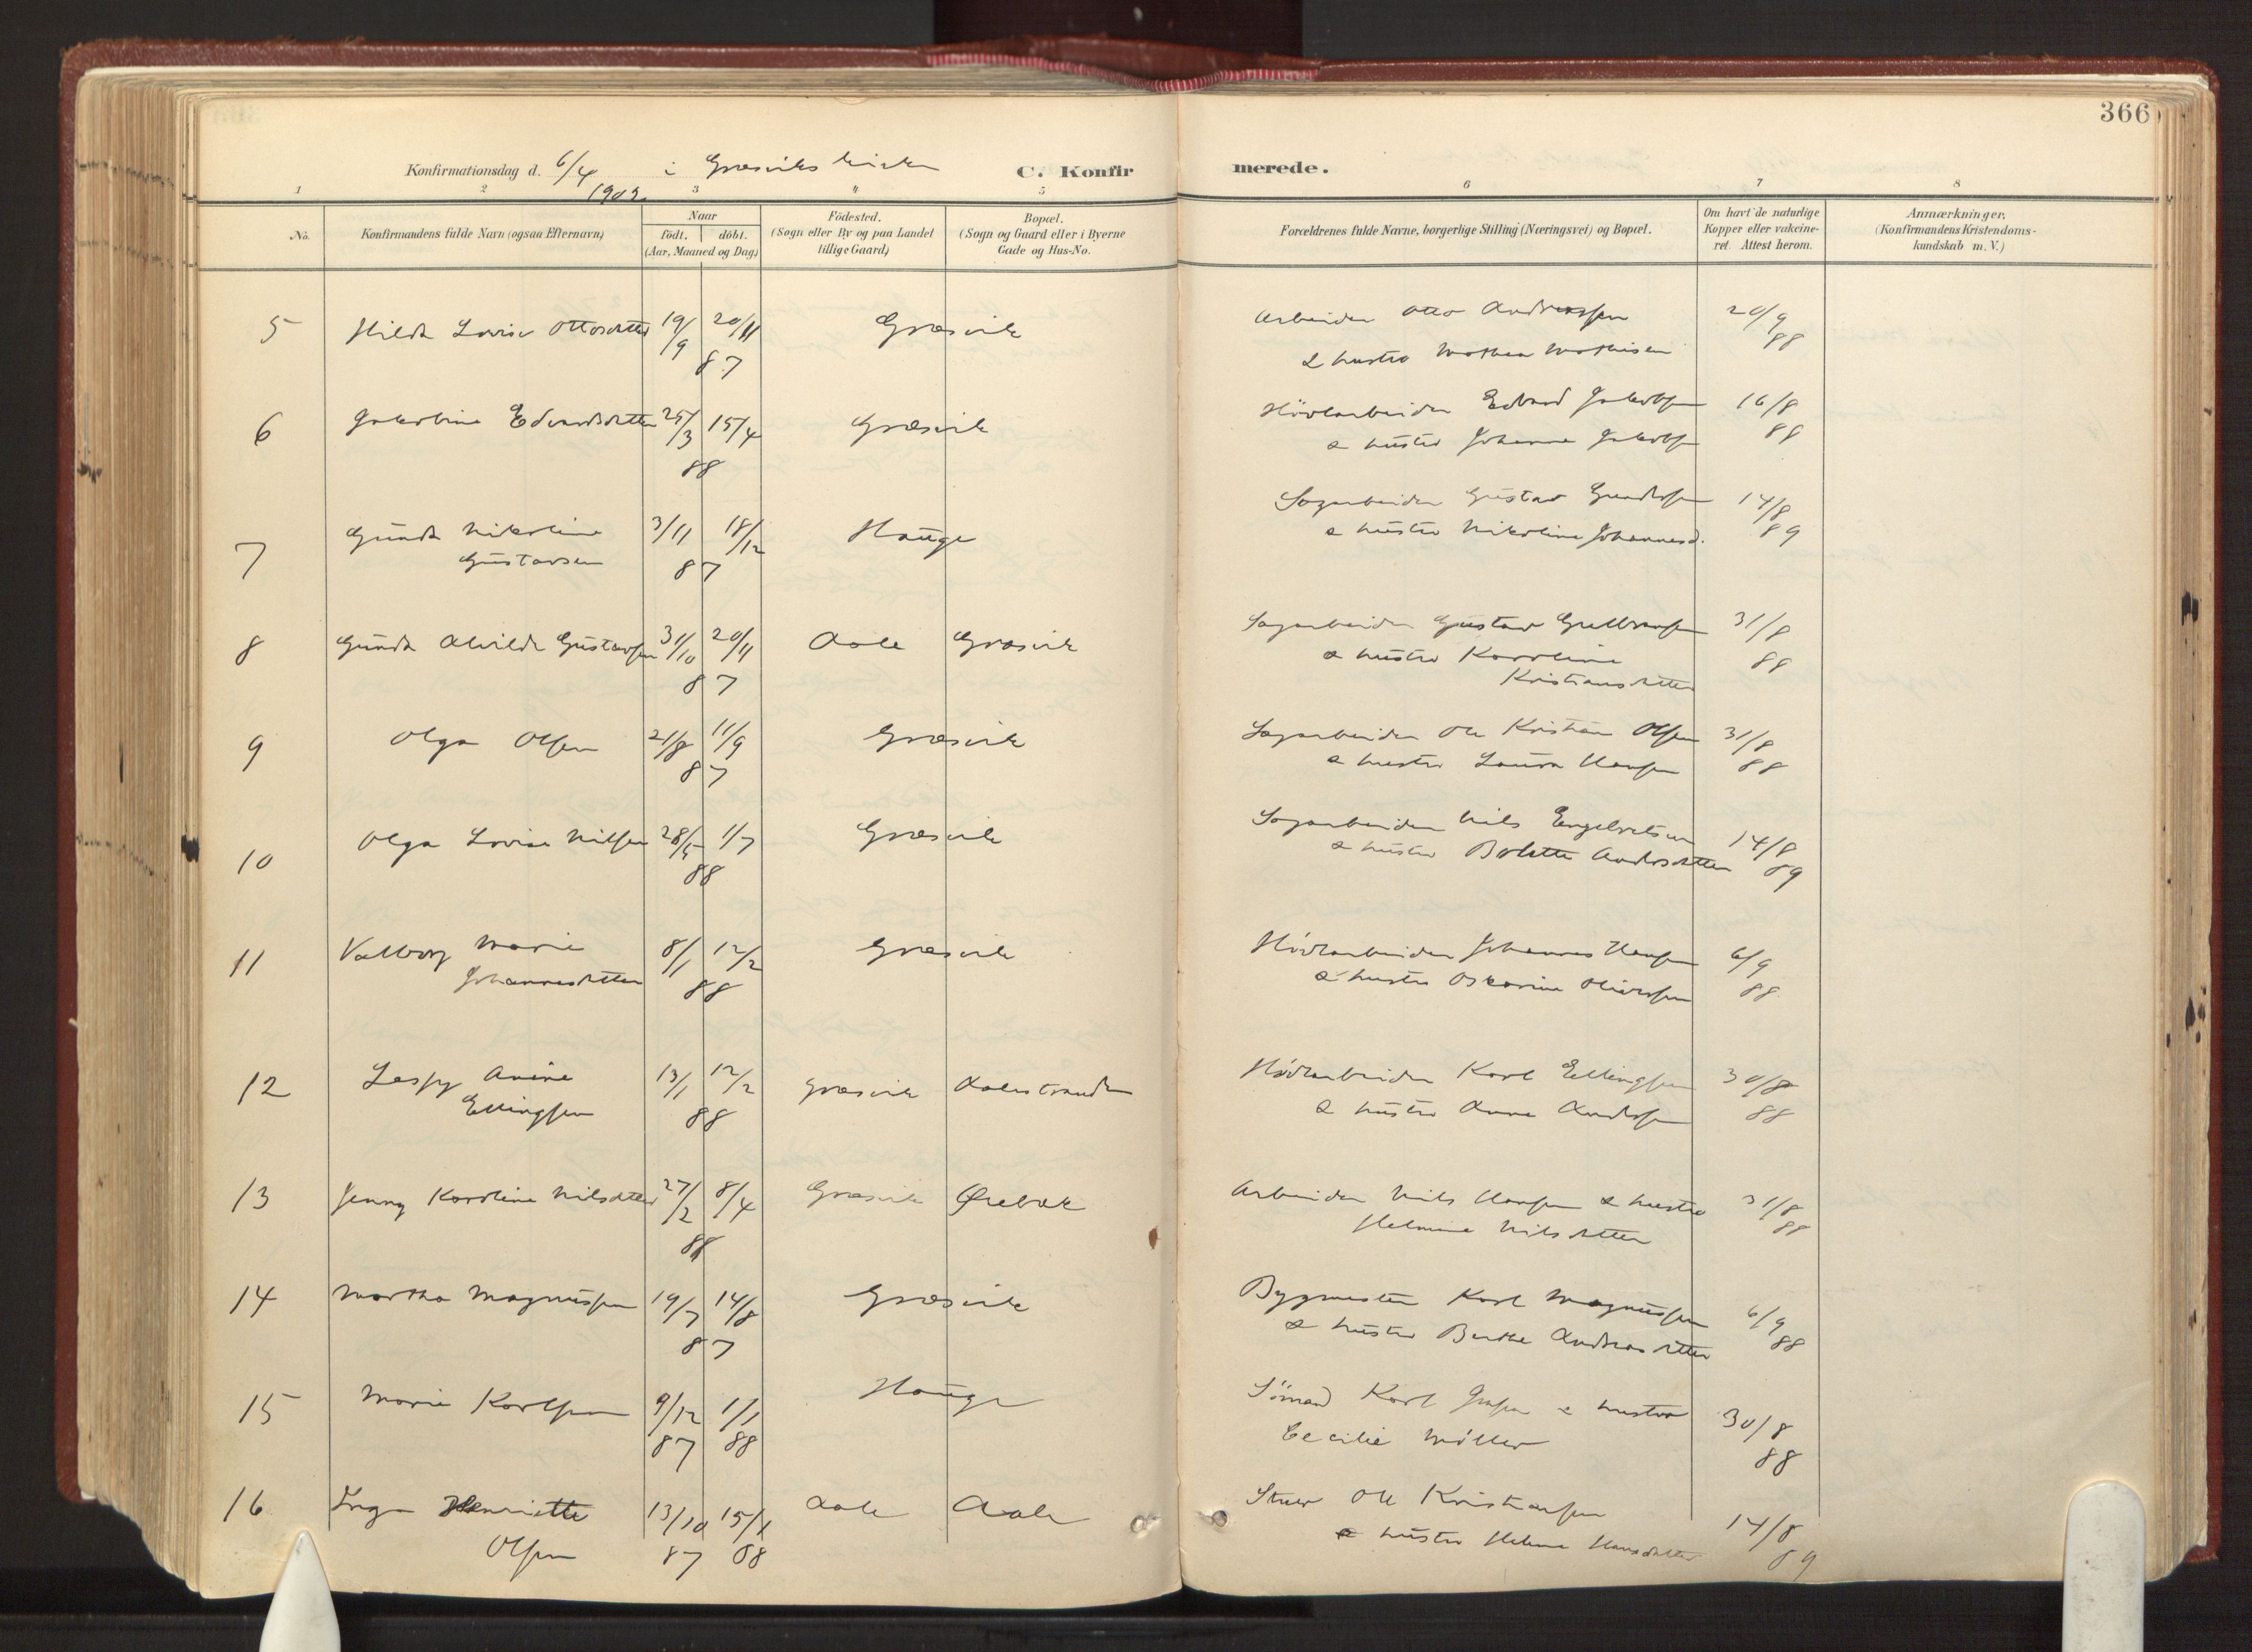 366
Konfirmationsdag d. 6/4 1902 i Græsviks kirke
C. Konfirmerede.
1 2 3 4 5 6 7 8
No.
Konfirmandens fulde Navn (ogsaa Efternavn)
Naar
födt. döbt.
(Aar, Maaned og Dag)
Födested.
(Sogn eller By og paa Landet
tillige Gaard)
Bopæl.
(Sogn og Gaard eller i Byerne
Gade og Hus-No.
Forældrenes fulde Navne, borgerlige Stilling (Næringsvei) og Bopæl.
Om havt de naturlige
Kopper eller vakcine-
ret. Attest herom.
Anmærkninger,
(Konfirmandens Kristendoms-
kundskab m. V.)
5 Hilda Lovise Ottosdatter 19/9 20/11 Græsvik Arbeider Otto Andreassen 20/9
87 & hustru Mathea Mathisen 88
6 Jakobine Edvardsdatter 25/3 15/4 Græsvik Hövlarbeider Edvard Jakobsen 16/8
88 & hustru Johanne Jakobsen 88
7 Gunda Nikoline 3/11 18/12 Hauge Sagarbeider Gustav Gundersen 14/8
Gustavsen 87 & hustru Nikoline Johannesd. 89
8 Gunda Alvilde Gustavsen 31/10 20/11 Aale Græsvik Sagarbeider Gustav Gulbransen 31/8
87 & hustru Karoline 88
Kristiansdatter
9 Olga Olsen 21/8 11/9 Græsvik Sagarbeider Ole Kristian Olsen 31/8
87 & hustru Laura Hansen 88
10 Olga Lovise Nilsen 28/5 1/7 Græsvik Sagarbeider Nils Engelretsen 14/8
88 & hustru Bolette Andersdatter 89
11 Valborg Marie 8/1 12/2 Græsvik Hövlarbeider Johannes Hansen 6/9
Johannesdatter 88 & hustru Oskarine Oliversen 88
12 Anine 13/1 12/2 Græsvik Aalestranden Hövlarbeider Karl Ellingsen 30/8
Ellingsen 88 & hustru Anne Andersen 88
13 Jenny Karoline Nilsdatter 27/2 8/4 Græsvik Ørebæk Arbeider Nils Hansen & hustru 31/8
88 Helmine Nilsdatter 88
14 Martha Magnussen 19/7 14/8 Græsvik Bygmester Karl Magnussen 6/9
87 & hustru Berthe Andreasdatter 88
15 Marie Karlsen 9/12 1/1 Hauge Sömand Karl & hustru 30/8
87 88 Cecilie Möller 88
16 Inga Henriette 13/10 15/1 Aale Aale Stuer Ole Kristiansen 14/8
Olsen 87 88 & hustru Helene Hansdatter 89